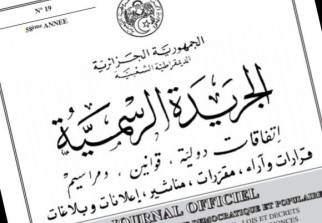 N° 19
58ème ANNEE
الجمهورية الجزائرية
الديمقراطية الشعبية
الجريدة الرسمية
اتفاقات دولية ، قوانين ، ومراسيم
قرارات وآراء ، مقررات ، مناشير ، إعلانات وبلاغات
JOURNAL OFFICIEL
DEMOCRATIQUE ET POPULAIRE
LOIS ET DECRETS